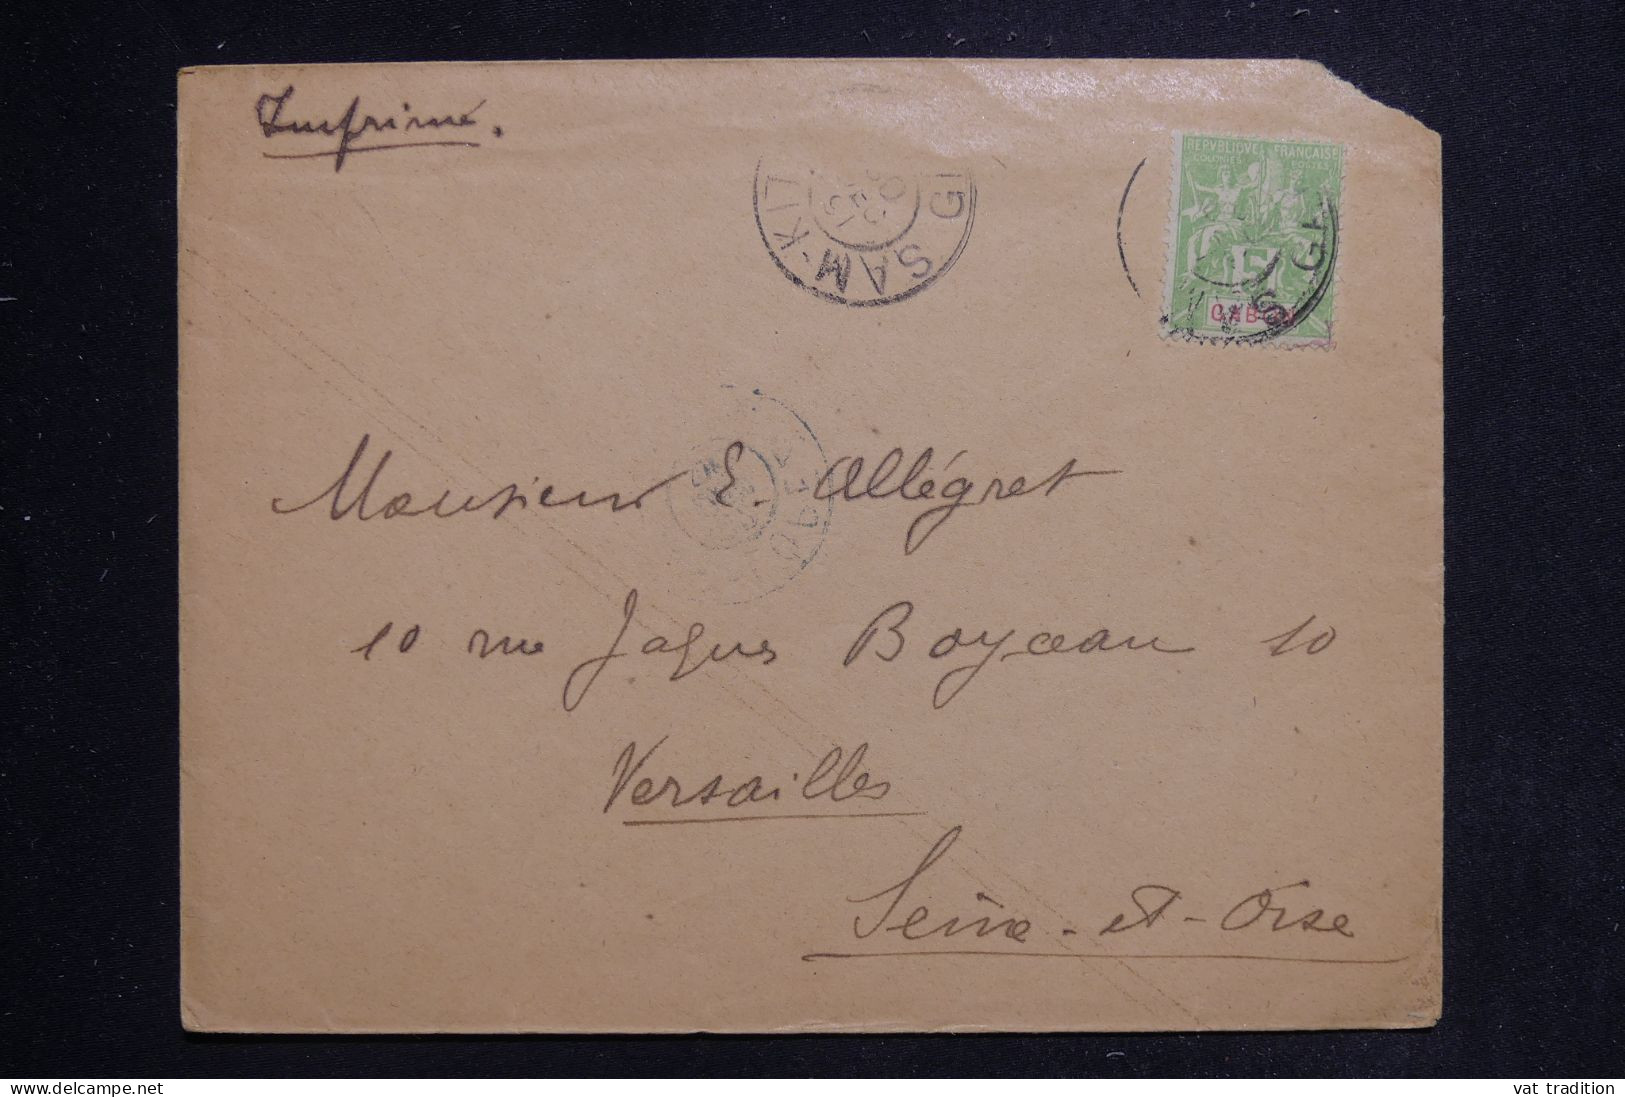 Imprimé.
REPUBLIQUE FRANÇAISE
COLONIES POSTES
5
GABON
SAM·KIT
GA
Monsieur E. Allégret
10 rue Jaques Boyceau 10
Versailles
Seine-et-Oise
www.delcampe.net
vat tradition